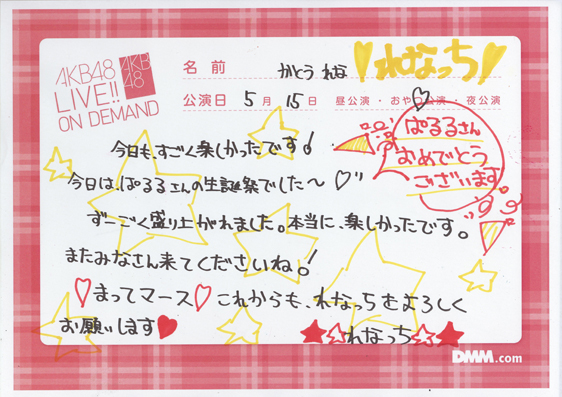 AKB48
LIVE!!
ON DEMAND
AKB
48
名前 かとう れな れなっち!
公演日 5月 15日 昼公演・おやつ公演・夜公演
ぱるるさん
おめでとう
ございます
今日も、すごく楽しかったです!
今日は、ぱるるさんの生誕祭でした〜♡
ずーごく盛り上がれました。本当に、楽しかったです。
またみなさん来てくださいね!
♡まってマース♡これからも、れなっちをよろしく
お願いします♥
★☆れなっち☆★
DMM.com